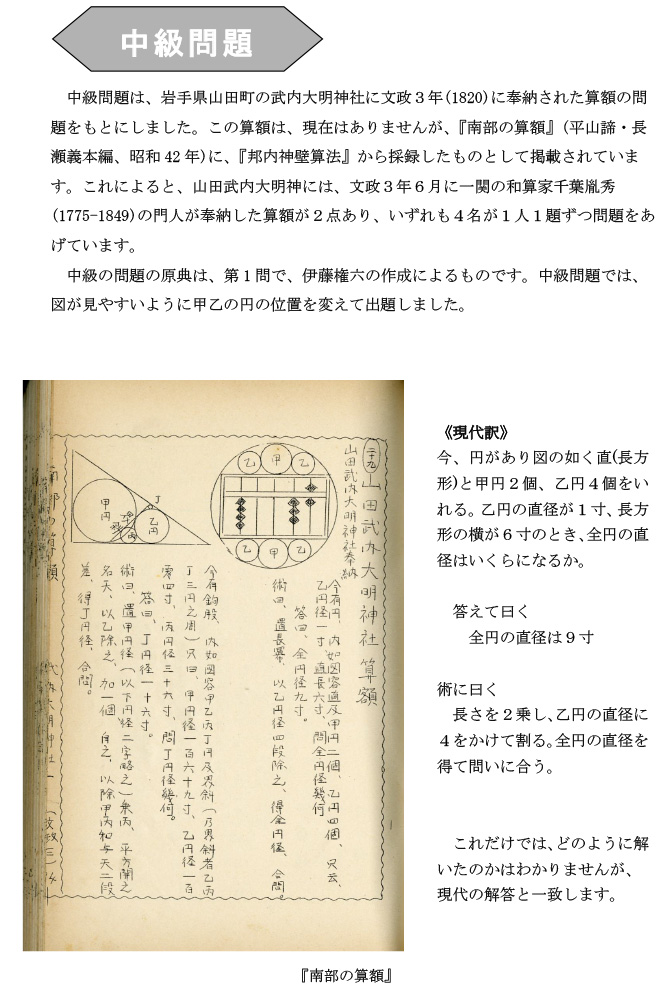 中級問題
中級問題は、岩手県山田町の武内大明神社に文政３年(1820)に奉納された算額の問
題をもとにしました。この算額は、現在はありませんが、『南部の算額』(平山諦・長
瀬義本編、昭和 42 年)に、『邦内神壁算法』から採録したものとして掲載されていま
す。これによると、山田武内大明神には、文政３年６月に一関の和算家千葉胤秀
(1775-1849)の門人が奉納した算額が２点あり、いずれも４名が１人１題ずつ問題をあ
げています。
中級の問題の原典は、第１問で、伊藤権六の作成によるものです。中級問題では、
図が見やすいように甲乙の円の位置を変えて出題しました。
《現代訳》
今、円があり図の如く直(長方
形)と甲円２個、乙円４個をい
れる。乙円の直径が１寸、長方
形の横が６寸のとき、全円の直
径はいくらになるか。
答えて曰く
全円の直径は９寸
術に曰く
長さを２乗し、乙円の直径に
４をかけて割る。全円の直径を
得て問いに合う。
これだけでは、どのように解
いたのかはわかりませんが、
現代の解答と一致します。
二十九
山田武内大明神社 算額
山田武内大明神社奉納
乙 甲 乙
乙 甲 乙
今有円、内如図容直及甲円二個、乙円四個、只云、
乙円径一寸、直長六寸、問全円径幾何
答曰、全円径九寸、
術曰、置長冪、以乙円径四段除之、得全円径、合問。
甲円
乙円
丁
今有鈎股、内如図容甲乙丙丁円及界斜(乃界斜者乙丙
丁三円之周)只曰、甲円径一百六十九寸、乙円径一百
零四寸、丙円径三十九寸、問丁円径幾何。
答曰、丁円径一十六寸。
術曰、置甲円径(以下円径二字略之)乗丙、平方開之
名天、以乙除之、加一個、自之、以除甲丙和与天二段
差、得丁円径、合問。
『南部の算額』